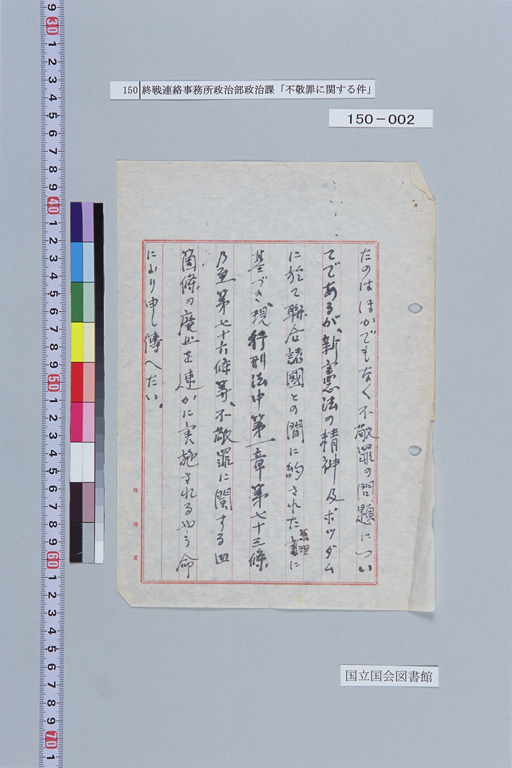 150 終戦連絡事務所政治部政治課「不敬罪に関する件」
150-002
たのはほかでもなく不敬罪の問題につい
てであるが、新憲法の精神及ポツダム
に於て聯合諸國との間に約された に
基づき、現行刑法中第一章第七十三條
乃至第七十六條等、不敬罪に関する四
箇條の廃止を速かに実施されるやう命
により申し傳へたい。
国立国会図書館